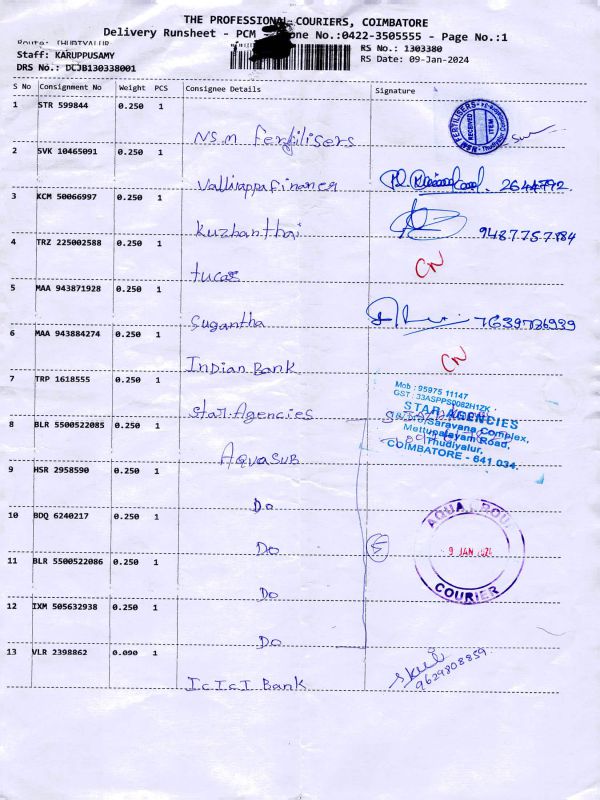 THE PROFESSIONAL COURIERS, COIMBATORE
Delivery Runsheet - PCM one No.:0422-3505555 - Page No.:1
Staff: KARUPPUSAMY
RS No.: 1303380
DRS No.: DCJB130338001
RS Date: 09-Jan-2024
S No Consignment No Weight PCS Consignee Details Signature
1 STR 599844 0.250 1
NSM Fertilisers
NSM FERTILISERS
RECEIVED
Thudiyalur
2 SVK 10465091 0.250 1
Valliappa Finance 2644792.
3 KCM 50066997 0.250 1
Kuzhanthai 9487757184
4 TRZ 225002588 0.250 1
CN
tucas
5 MAA 943871928 0.250 1
Sugantha 7639786939
6 MAA 943884274 0.250 1
CN
Indian Bank
7 TRP 1618555 0.250 1
Mob : 95975 11147
GST : 33ASPPS0082H1ZK
Star Agencies
STAR AGENCIES
Saravana Complex,
Mettupalayam Road,
Thudiyalur,
COIMBATORE - 641 034.
8 BLR 5500522085 0.250 1
AquaSub
9 HSR 2958590 0.250 1
Do
10 BDQ 6240217 0.250 1
Do 5
AQUA GROU
9 JAN 2024
COURIER
11 BLR 5500522086 0.250 1
Do
12 IXM 505632938 0.250 1
Do
13 VLR 2398862 0.090 1
ICICI Bank
9629808859